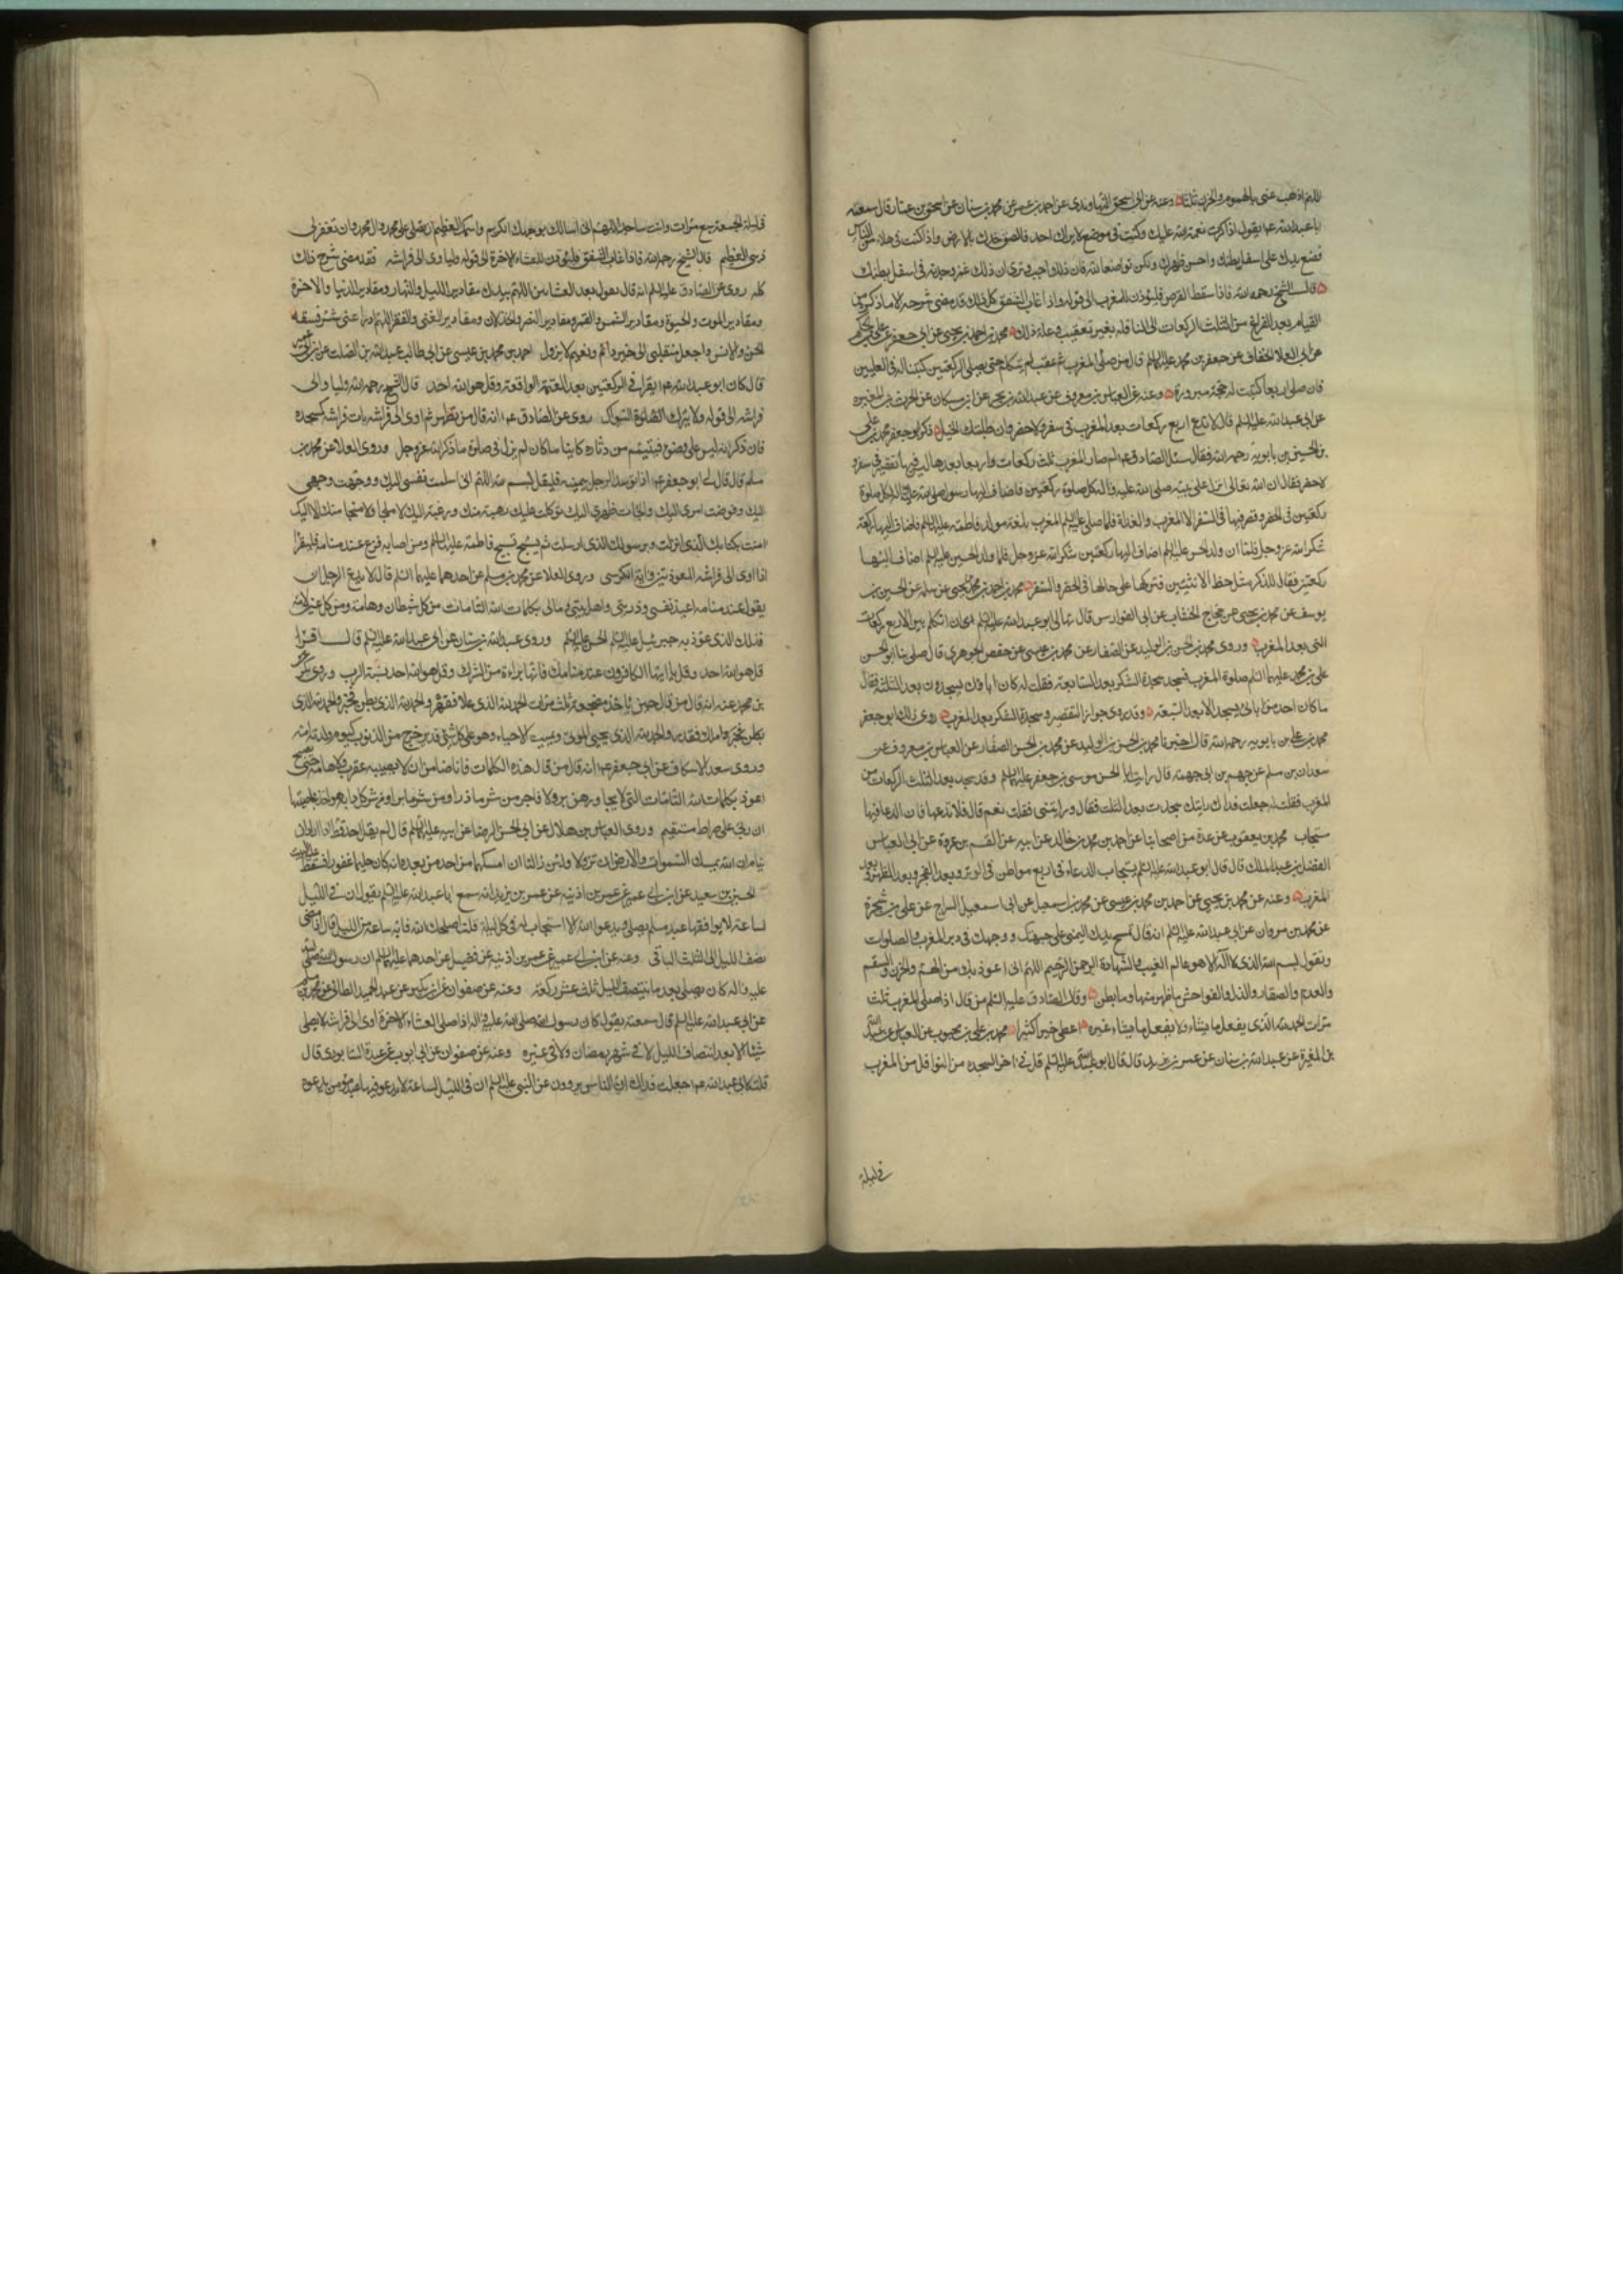 اللهم اذهب عنى بالهموم والحزن ثلثا وعنه عن ابى اسحق النهاوندى عن احمد بن عمر عن محمد بن سنان عن اسحق بن عمار قال سمعت
ابا عبدالله ع يقول اذا ذكرت نعمة الله عليك وكنت فى موضع لا يراك احد فالصق خدك بالارض واذا كنت فى ملاء من الناس
فضع يدك على اسفل بطنك واحن ظهرك وليكن تواضعا لله فان ذلك احب وترى ان ذلك غمز وجدته فى اسفل بطنك
قال الشيخ رحمه الله فاذا سقط القرص فليؤذن للمغرب الى قوله واذا غاب الشفق كل ذلك قد مضى شرحه الا ما ذكره من
القيام بعد الفراغ من الثلث الركعات الى النافلة بغير تعقيب فدعاء ذلك محمد بن احمد بن يحيى عن ابى جعفر عن على بن الحكم
عن ابى العلا الخفاف عن جعفر بن محمد عليه السلم قال من صلى المغرب ثم عقب لم يتكلم حتى يصلى ركعتين كتبتا له فى العليين
فان صلى اربعا كتبت له حجة مبرورة وعنه عن العباس بن معروف عن عبدالله بن بحر عن ابن مسكان عن الحرث بن المغيرة
عن ابى عبدالله عليه السلم قال لا تدع اربع ركعات بعد المغرب فى سفر ولا حضر وان طلبتك الخيل ذكر ابو جعفر محمد بن على
بن الحسين بن بابويه رحمه الله فقال سئل الصادق ع لم صار المغرب ثلث ركعات واربعا بعدها ليس فيها تقصير فى سفر و
لا حضر فقال ان الله تعالى انزل على نبيه صلى الله عليه واله كل صلوة ركعتين فاضاف اليها رسول الله صلى الله عليه واله لكل صلوة
ركعتين فى الحضر وقصر فيها فى السفر الا المغرب والغداة فلما صلى عليه السلم المغرب بلغه مولد فاطمة عليها السلم فاضاف اليها ركعة
شكرا لله عز وجل فلما ان ولد الحسن عليه السلم اضاف اليها ركعتين شكرا لله عز وجل فلما ولد الحسين عليه السلم اضاف اليها
ركعتين فقال للذكر مثل حظ الانثيين فتركها على حالها فى الحضر والسفر محمد بن احمد بن يحيى عن سلمة عن الحسين بن
يوسف عن محمد بن يحيى عن حجاج الخشاب عن ابى الفوارس قال نهانى ابو عبدالله عليه السلم ان اتكلم بين الاربع ركعات
التى بعد المغرب وروى محمد بن الحسن بن الوليد عن الصفار عن محمد بن عيسى عن حفص الجوهرى قال صلى بنا ابو الحسن
على بن محمد عليهما السلم صلوة المغرب فسجد سجدة الشكر بعد السابعة فقلت له كان اباؤك يسجدون بعد الثلثة فقال
ما كان احد من ابائى يسجد الا بعد السبعة وقد روى جواز التقصير وسجدة الشكر بعد المغرب روى ذلك ابو جعفر
محمد بن على بن بابويه رحمه الله قال حدثنا محمد بن الحسن بن الوليد عن محمد بن الحسن الصفار عن العباس بن معروف عن
سعدان بن مسلم عن جهم بن ابى جهمة قال رايت ابا الحسن موسى بن جعفر عليه السلم وقد سجد بعد الثلث الركعات من
المغرب فقلت له جعلت فداك رايتك سجدت بعد الثلث فقال ورايتنى فقلت نعم قال فلا تدعها فان الدعا فيها
مستجاب محمد بن يعقوب عن عدة من اصحابنا عن احمد بن محمد بن خالد عن ابيه عن القسم بن عروة عن ابى العباس
الفضل بن عبدالملك قال قال ابو عبدالله عليه السلم يستجاب الدعاء فى اربع مواطن فى الوتر وبعد الفجر وبعد الظهر وبعد
المغرب وعنه عن محمد بن يحيى عن احمد بن محمد بن عيسى عن محمد بن اسمعيل عن ابى اسمعيل السراج عن على بن شجرة
عن محمد بن مروان عن ابى عبدالله عليه السلم انه قال تمسح بيدك اليمنى على جبهتك ووجهك فى دبر المغرب والصلوات
وتقول بسم الله الذى لا اله الا هو عالم الغيب والشهادة الرحمن الرحيم اللهم انى اعوذ بك من الهم والحزن والسقم
والعدم والصغار والذل والفواحش ما ظهر منها وما بطن وقال الصادق عليه السلم من قال اذا صلى المغرب ثلث
مرات الحمد لله الذى يفعل ما يشاء ولا يفعل ما يشاء غيره اعطى خيرا كثيرا محمد بن على بن محبوب عن العباس عن عبدالله
بن المغيرة عن عبدالله بن سنان عن عمر بن يزيد قال قال ابو عبدالله عليه السلم قل فى اخر السجدة من النوافل من المغرب
فى ليلة
فى ليلة الجمعة سبع مرات وانت ساجد اللهم انى اسالك بوجهك الكريم واسمك العظيم ان تصلى على محمد وال محمد وان تغفر لى
ذنبى العظيم قال الشيخ رحمه الله فاذا غاب الشفق فليؤذن للعشاء الاخرة الى قوله وليأوى الى فراشه فقد مضى شرح ذلك
كله روى عن الصادق عليه السلم انه قال يقول بعد العشائين اللهم بيدك مقادير الليل والنهار ومقادير الدنيا والاخرة
ومقادير الموت والحيوة ومقادير الشمس والقمر ومقادير النصر والخذلان ومقادير الغنى والفقر اللهم ادرا عنى شر فسقة
الجن والانس واجعل منقلبى الى خير دائم ونعيم لا يزول احمد بن محمد بن عيسى عن ابى طالب عبدالله بن الصلت عن
قال كان ابو عبدالله ع يقرا فى الركعتين بعد العتمة الواقعة وقل هو الله احد قال الشيخ رحمه الله وليا والى
فراشه الى قوله ولا يترك السواك روى عن الصادق ع انه قال من تطهر ثم اوى الى فراشه بات وفراشه كمسجده
فان ذكر انه ليس على وضوء فيتيمم من دثاره كاينا ما كان لم يزل فى صلوة ما ذكر الله عز وجل وروى العلا عن محمد بن
مسلم قال قال لى ابو جعفر ع اذا توسد الرجل يمينه فليقل بسم الله اللهم انى اسلمت نفسى اليك ووجهت وجهى
اليك وفوضت امرى اليك والجات ظهرى اليك توكلت عليك رهبة منك ورغبة اليك لا ملجا ولا منجا منك الا اليك
امنت بكتابك الذى انزلت وبرسولك الذى ارسلت ثم يسبح تسبيح فاطمة عليها السلم ومن اصابه فزع عند منامه فليقرا
اذا اوى الى فراشه المعوذتين واية الكرسى وروى العلا عن محمد بن مسلم عن احدهما عليهما السلم قال لا يدع الرجل ان
يقول عند منامه اعيذ نفسى وذريتى واهل بيتى ومالى بكلمات الله التامات من كل شيطان وهامة ومن كل عين لامة
فذلك الذى عوذ به جبرئيل عليه السلم الحسن عليه السلم وروى عبدالله بن سنان عن ابى عبدالله عليه السلم قال اقرا
قل هو الله احد وقل يا ايها الكافرون عند منامك فانها براءة من الشرك وقل هو الله احد نسبة الرب وروى بكر
بن محمد عنه انه قال من قال حين ياخذ مضجعه ثلث مرات الحمد لله الذى علا فقهر والحمد لله الذى بطن فخبر والحمد لله الذى
ملك فقدر والحمد لله الذى يحيى الموتى ويميت الاحياء وهو على كل شئ قدير خرج من الذنوب كيوم ولدته امه
وروى سعد الاسكاف عن ابى جعفر ع انه قال من قال هذه الكلمات فانا ضامن ان لا يصيبه عقرب ولا هامة حتى يصبح
اعوذ بكلمات الله التامات التى لا يجاوزهن بر ولا فاجر من شر ما ذرا ومن شر ما برا ومن شر كل دابة هو اخذ بناصيتها
ان ربى على صراط مستقيم وروى العباس بن هلال عن ابى الحسن الرضا عن ابيه عليه السلم قال لم يقل احد قط اذا اراد ان
ينام ان الله يمسك السموات والارض ان تزولا ولئن زالتا ان امسكهما من احد من بعده انه كان حليما غفورا فسقط عليه البيت
الحسين بن سعيد عن ابن ابى عمير عن عمر بن اذينة عن عمر بن يزيد انه سمع ابا عبدالله عليه السلم يقول ان فى الليل
لساعة لا يوافقها عبد مسلم يصلى ويدعو الله الا استجاب له فى كل ليلة قلت اصلحك الله فاية ساعة من الليل قال اذا مضى
نصف الليل الى الثلث الباقى وعنه عن ابن ابى عمير عن عمر بن اذينة عن فضيل عن احدهما عليه السلم ان رسول الله صلى الله
عليه واله كان يصلى بعد ما ينتصف الليل ثلث عشر ركعة وعنه عن صفوان عن ابن بكير عن عبد الحميد الطائى عن محمد بن مسلم
عن ابى عبدالله عليه السلم قال سمعته يقول كان رسول الله صلى الله عليه واله اذا صلى العشاء الاخرة اوى الى فراشه لا يصلى
شيئا الا بعد انتصاف الليل لا فى شهر رمضان ولا فى غيره وعنه عن صفوان عن ابى ايوب عن عبدة السابورى قال
قلت لابى عبدالله ع جعلت فداك ان الناس يروون عن النبى عليه السلم ان فى الليل لساعة لا يدعو فيها عبد مؤمن بدعوة